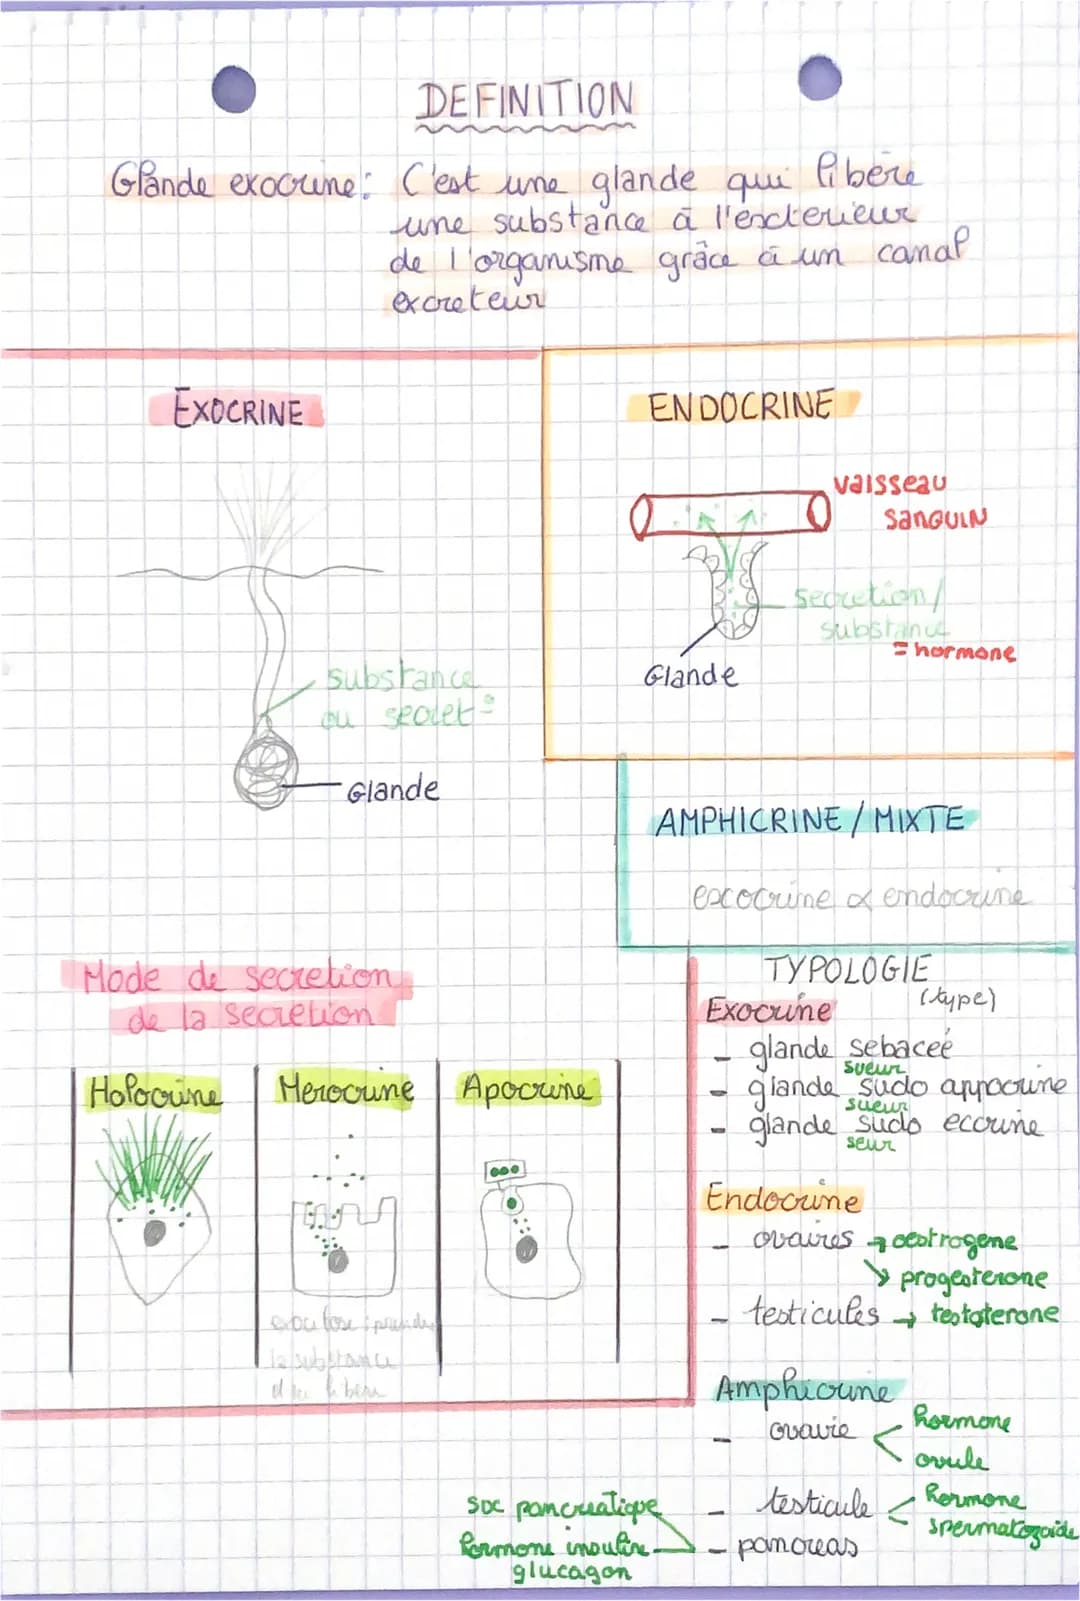 DEFINITION
Glande exocrine: C'est une glande qui libère
une substance à l'exterieur
de l'organisme grâce à un canal
excreteur
EXOCRINE
substance
ou secret°
Glande
ENDOCRINE
vaisseau
sanguin
secretion/
substance
= hormone
Glande
AMPHICRINE / MIXTE
exocrine & endocrine
Mode de secretion
de la secretion
Holocrine
Merocrine
Apocrine
la substance
TYPOLOGIE
(type)
Exocrine
- glande sebaceé
sueur
- glande sudo appocrine
sueur
- glande sudo eccrine
seur
Endocrine
- ovaires → oestrogene
↘ progesterone
- testicules → testoterone
Amphicrine
- ovavie < hormone
ovule
- testicule < hormone
spermatozoide
suc pancreatique
hormone insuline - pancreas
glucagon